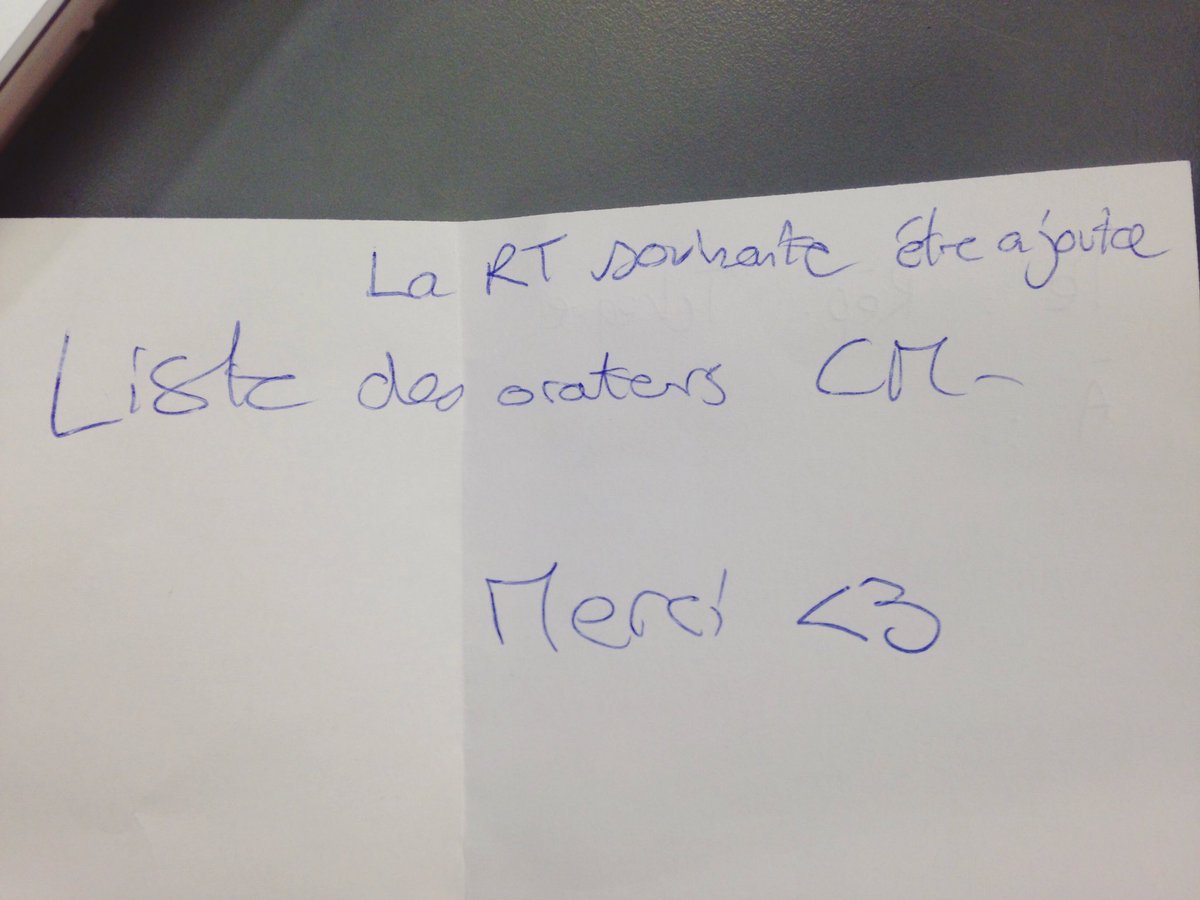 La RT souhaite être ajoutée
Liste des orateurs CM-
Merci <3